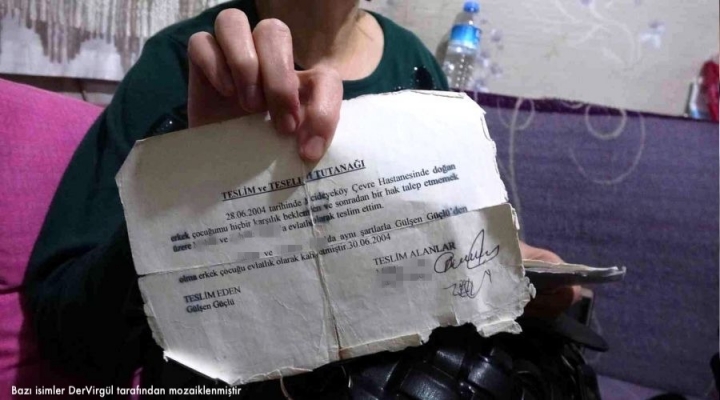 TESLİM ve TESELLÜM TUTANAĞI
28.06.2004 tarihinde Mecidiyeköy Çevre Hastanesinde doğan
erkek çocuğumu hiçbir karşılık beklemeden ve sonradan bir hak talep etmemek
üzere ve a evlatlık olarak teslim ettim.
ve da aynı şartlarla Gülşen Güçlü'den
olma erkek çocuğu evlatlık olarak kabul etmiştir.30.06.2004
TESLİM ALANLAR
TESLİM EDEN
Gülşen Güçlü
Bazı isimler DerVirgül tarafından mozaiklenmiştir